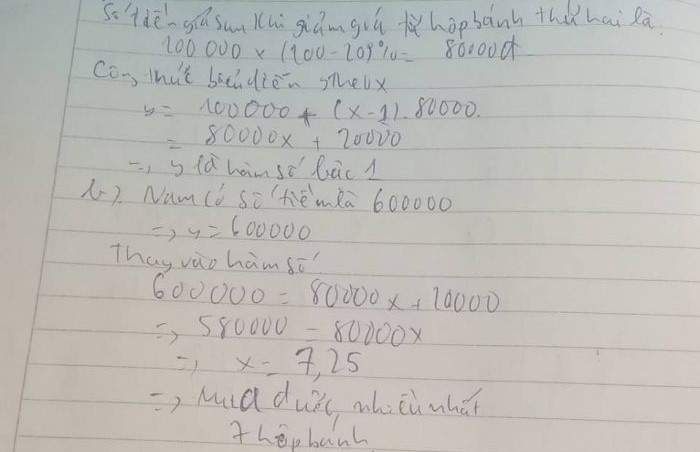 Số tiền giá sau khi giảm giá từ hộp bánh thứ hai là
100 000 x (100 - 20)% = 80000đ
Công thức biểu diễn y theo x
y = 100000 + (x-1).80000.
= 80000x + 20000
=> y là hàm số bậc 1
b). Nam có số tiền là 600000
=> y = 600000
Thay vào hàm số
600000 = 80000x + 20000
=> 580000 = 80000x
=> x = 7,25
=> Mua được nhiều nhất
7 hộp bánh